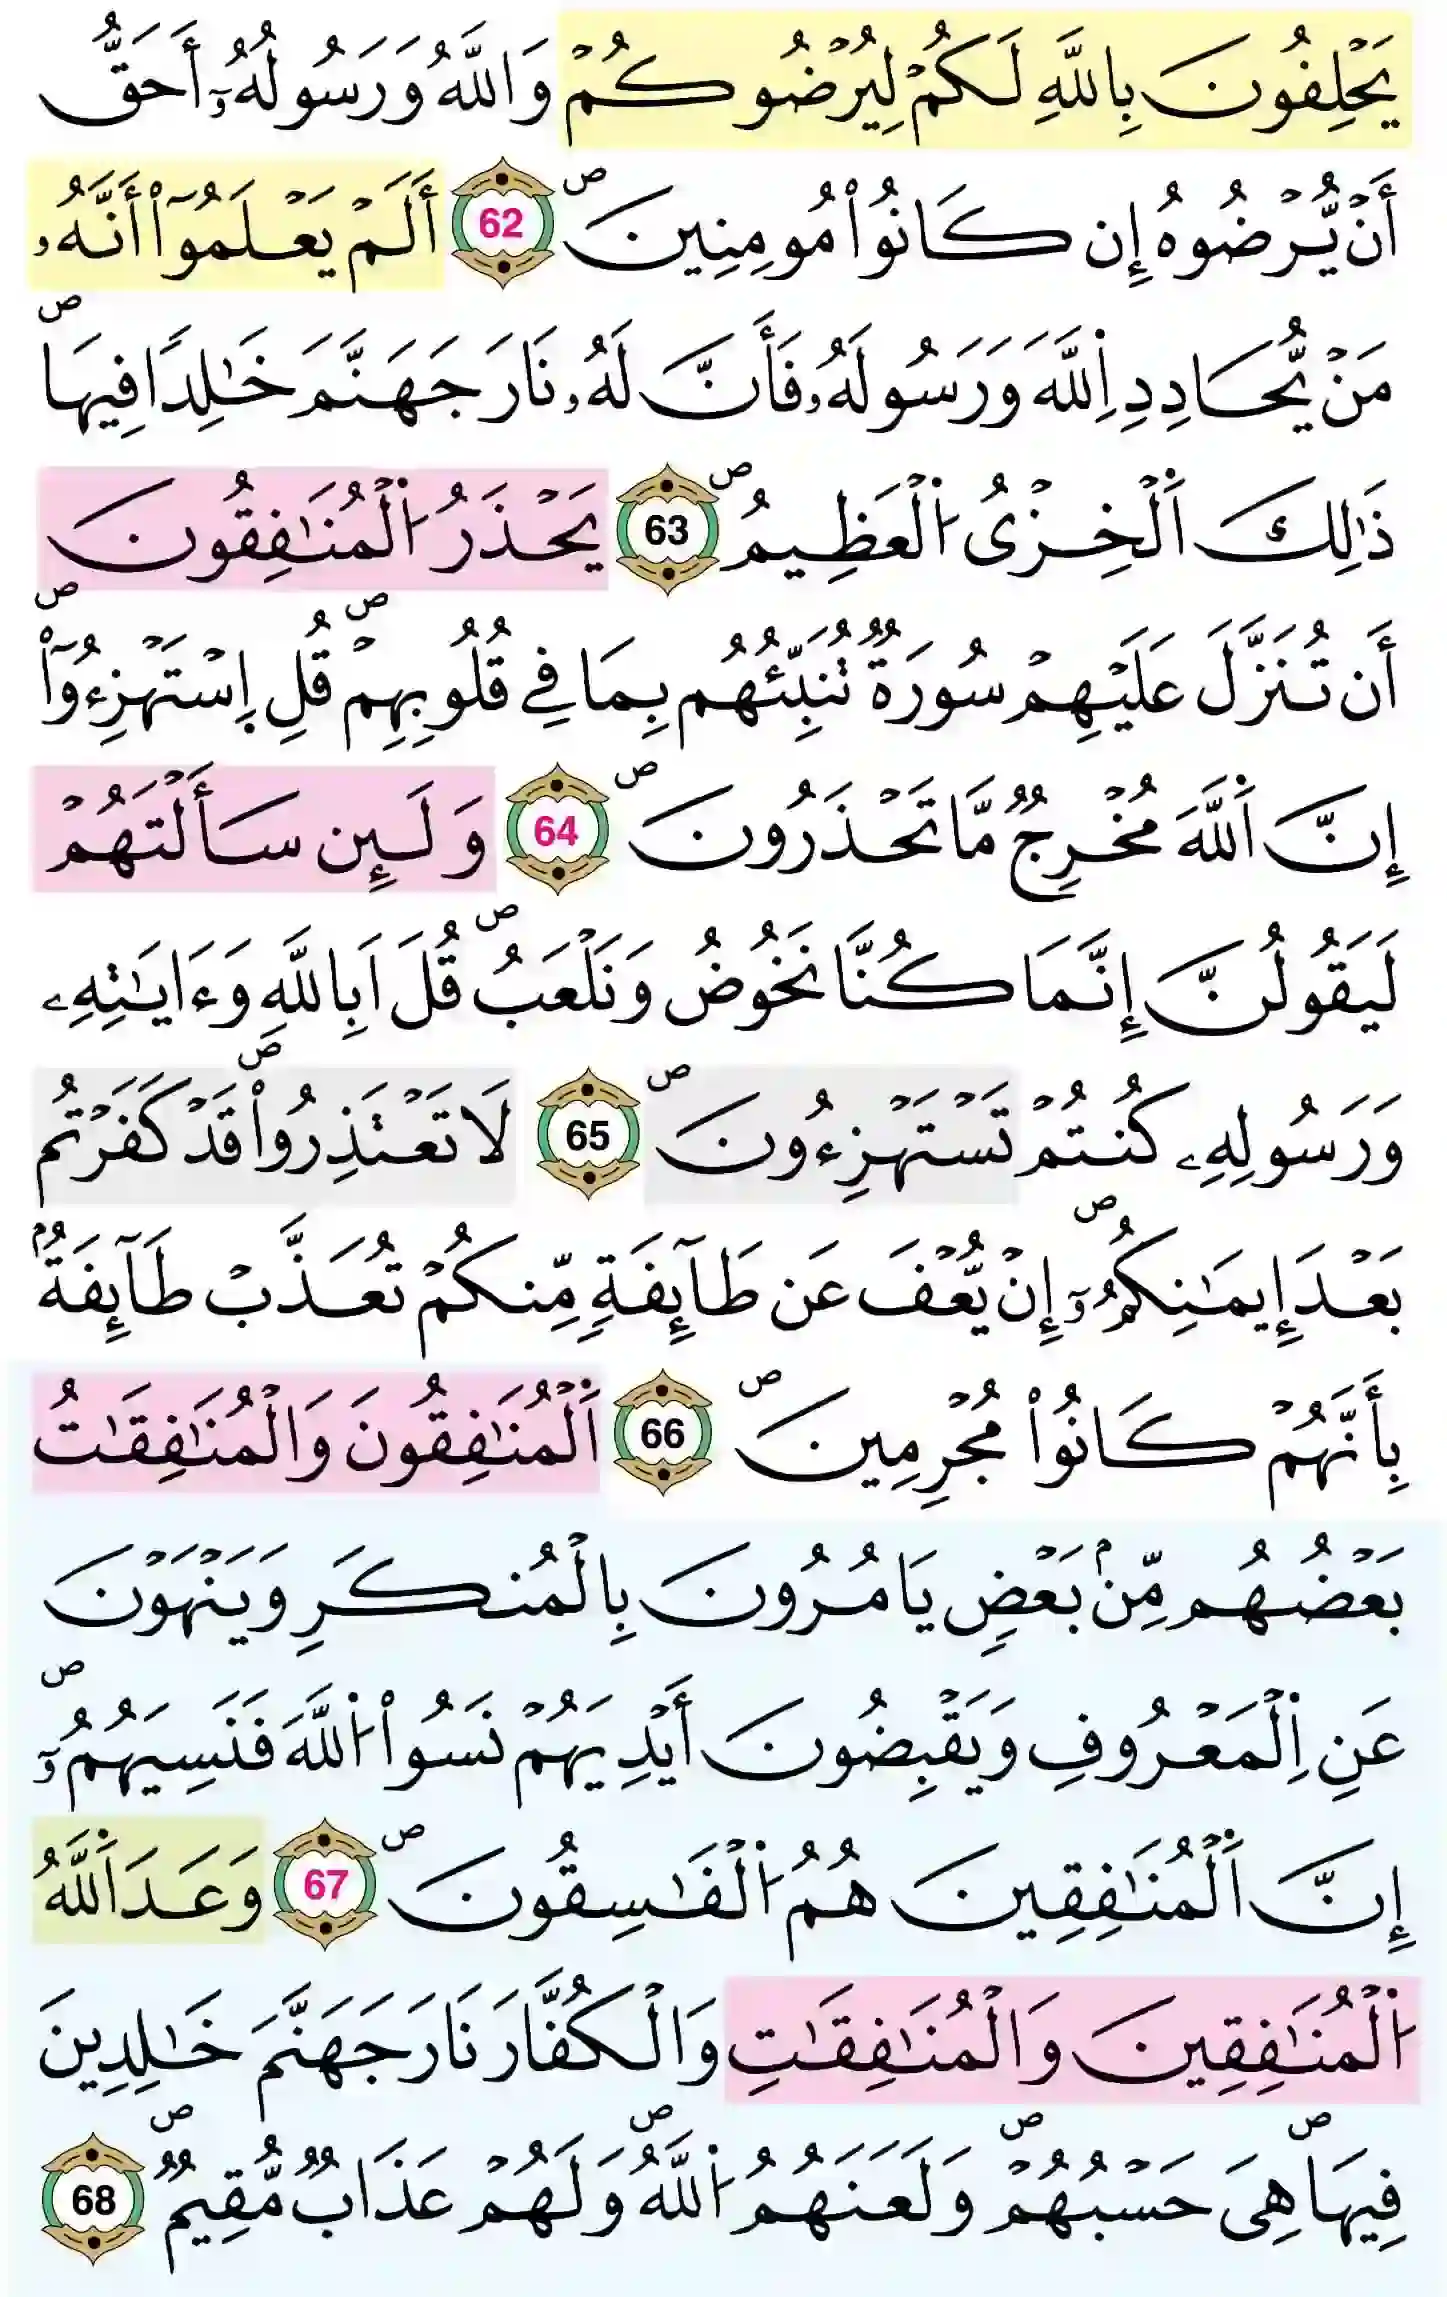 يَحْلِفُونَ بِاللَّهِ لَكُمْ لِيُرْضُوكُمْ وَاللَّهُ وَرَسُولُهُۥٓ أَحَقُّ
أَنْ يُّرْضُوهُ إِن كَانُواْ مُومِنِينَۖ 62 أَلَمْ يَعْلَمُوٓاْ أَنَّهُۥ
مَنْ يُّحَادِدِ اِ۬للَّهَ وَرَسُولَهُۥ فَأَنَّ لَهُۥ نَارَ جَهَنَّمَ خَٰلِدًا فِيهَاۖ
ذَٰلِكَ اَ۬لْخِزْىُ اُ۬لْعَظِيمُۖ 63 يَحْذَرُ اُ۬لْمُنَٰفِقُونَ
أَن تُنَزَّلَ عَلَيْهِمْ سُورَةٌ تُنَبِّئُهُم بِمَا فِے قُلُوبِهِمْۖ قُلِ اِسْتَهْزِءُوٓاْۖ
إِنَّ اَ۬للَّهَ مُخْرِجٌ مَّا تَحْذَرُونَۖ 64 وَلَئِن سَأَلْتَهُمْ
لَيَقُولُنَّ إِنَّمَا كُنَّا نَخُوضُ وَنَلْعَبُۖ قُلَ اَبِاللَّهِ وَءَايَٰتِهِۦ
وَرَسُولِهِۦ كُنتُمْ تَسْتَهْزِءُونَۖ 65 لَا تَعْتَذِرُواْۖ قَدْ كَفَرْتُم
بَعْدَ إِيمَٰنِكُمُۥٓۖ إِنْ يُّعْفَ عَن طَآئِفَةٍ مِّنكُمْ تُعَذَّبْ طَآئِفَةُۢ
بِأَنَّهُمْ كَانُواْ مُجْرِمِينَۖ 66 اَ۬لْمُنَٰفِقُونَ وَالْمُنَٰفِقَٰتُ
بَعْضُهُم مِّنۢ بَعْضٍ يَامُرُونَ بِالْمُنكَرِ وَيَنْهَوْنَ
عَنِ اِ۬لْمَعْرُوفِ وَيَقْبِضُونَ أَيْدِيَهُمْ نَسُواْ اُ۬للَّهَ فَنَسِيَهُمُۥٓۖ
إِنَّ اَ۬لْمُنَٰفِقِينَ هُمُ اُ۬لْفَٰسِقُونَۖ 67 وَعَدَ اَ۬للَّهُ
اُ۬لْمُنَٰفِقِينَ وَالْمُنَٰفِقَٰتِ وَالْكُفَّارَ نَارَ جَهَنَّمَ خَٰلِدِينَ
فِيهَاۖ هِىَ حَسْبُهُمْۖ وَلَعَنَهُمُ اُ۬للَّهُۖ وَلَهُمْ عَذَابٌ مُّقِيمٌۖ 68